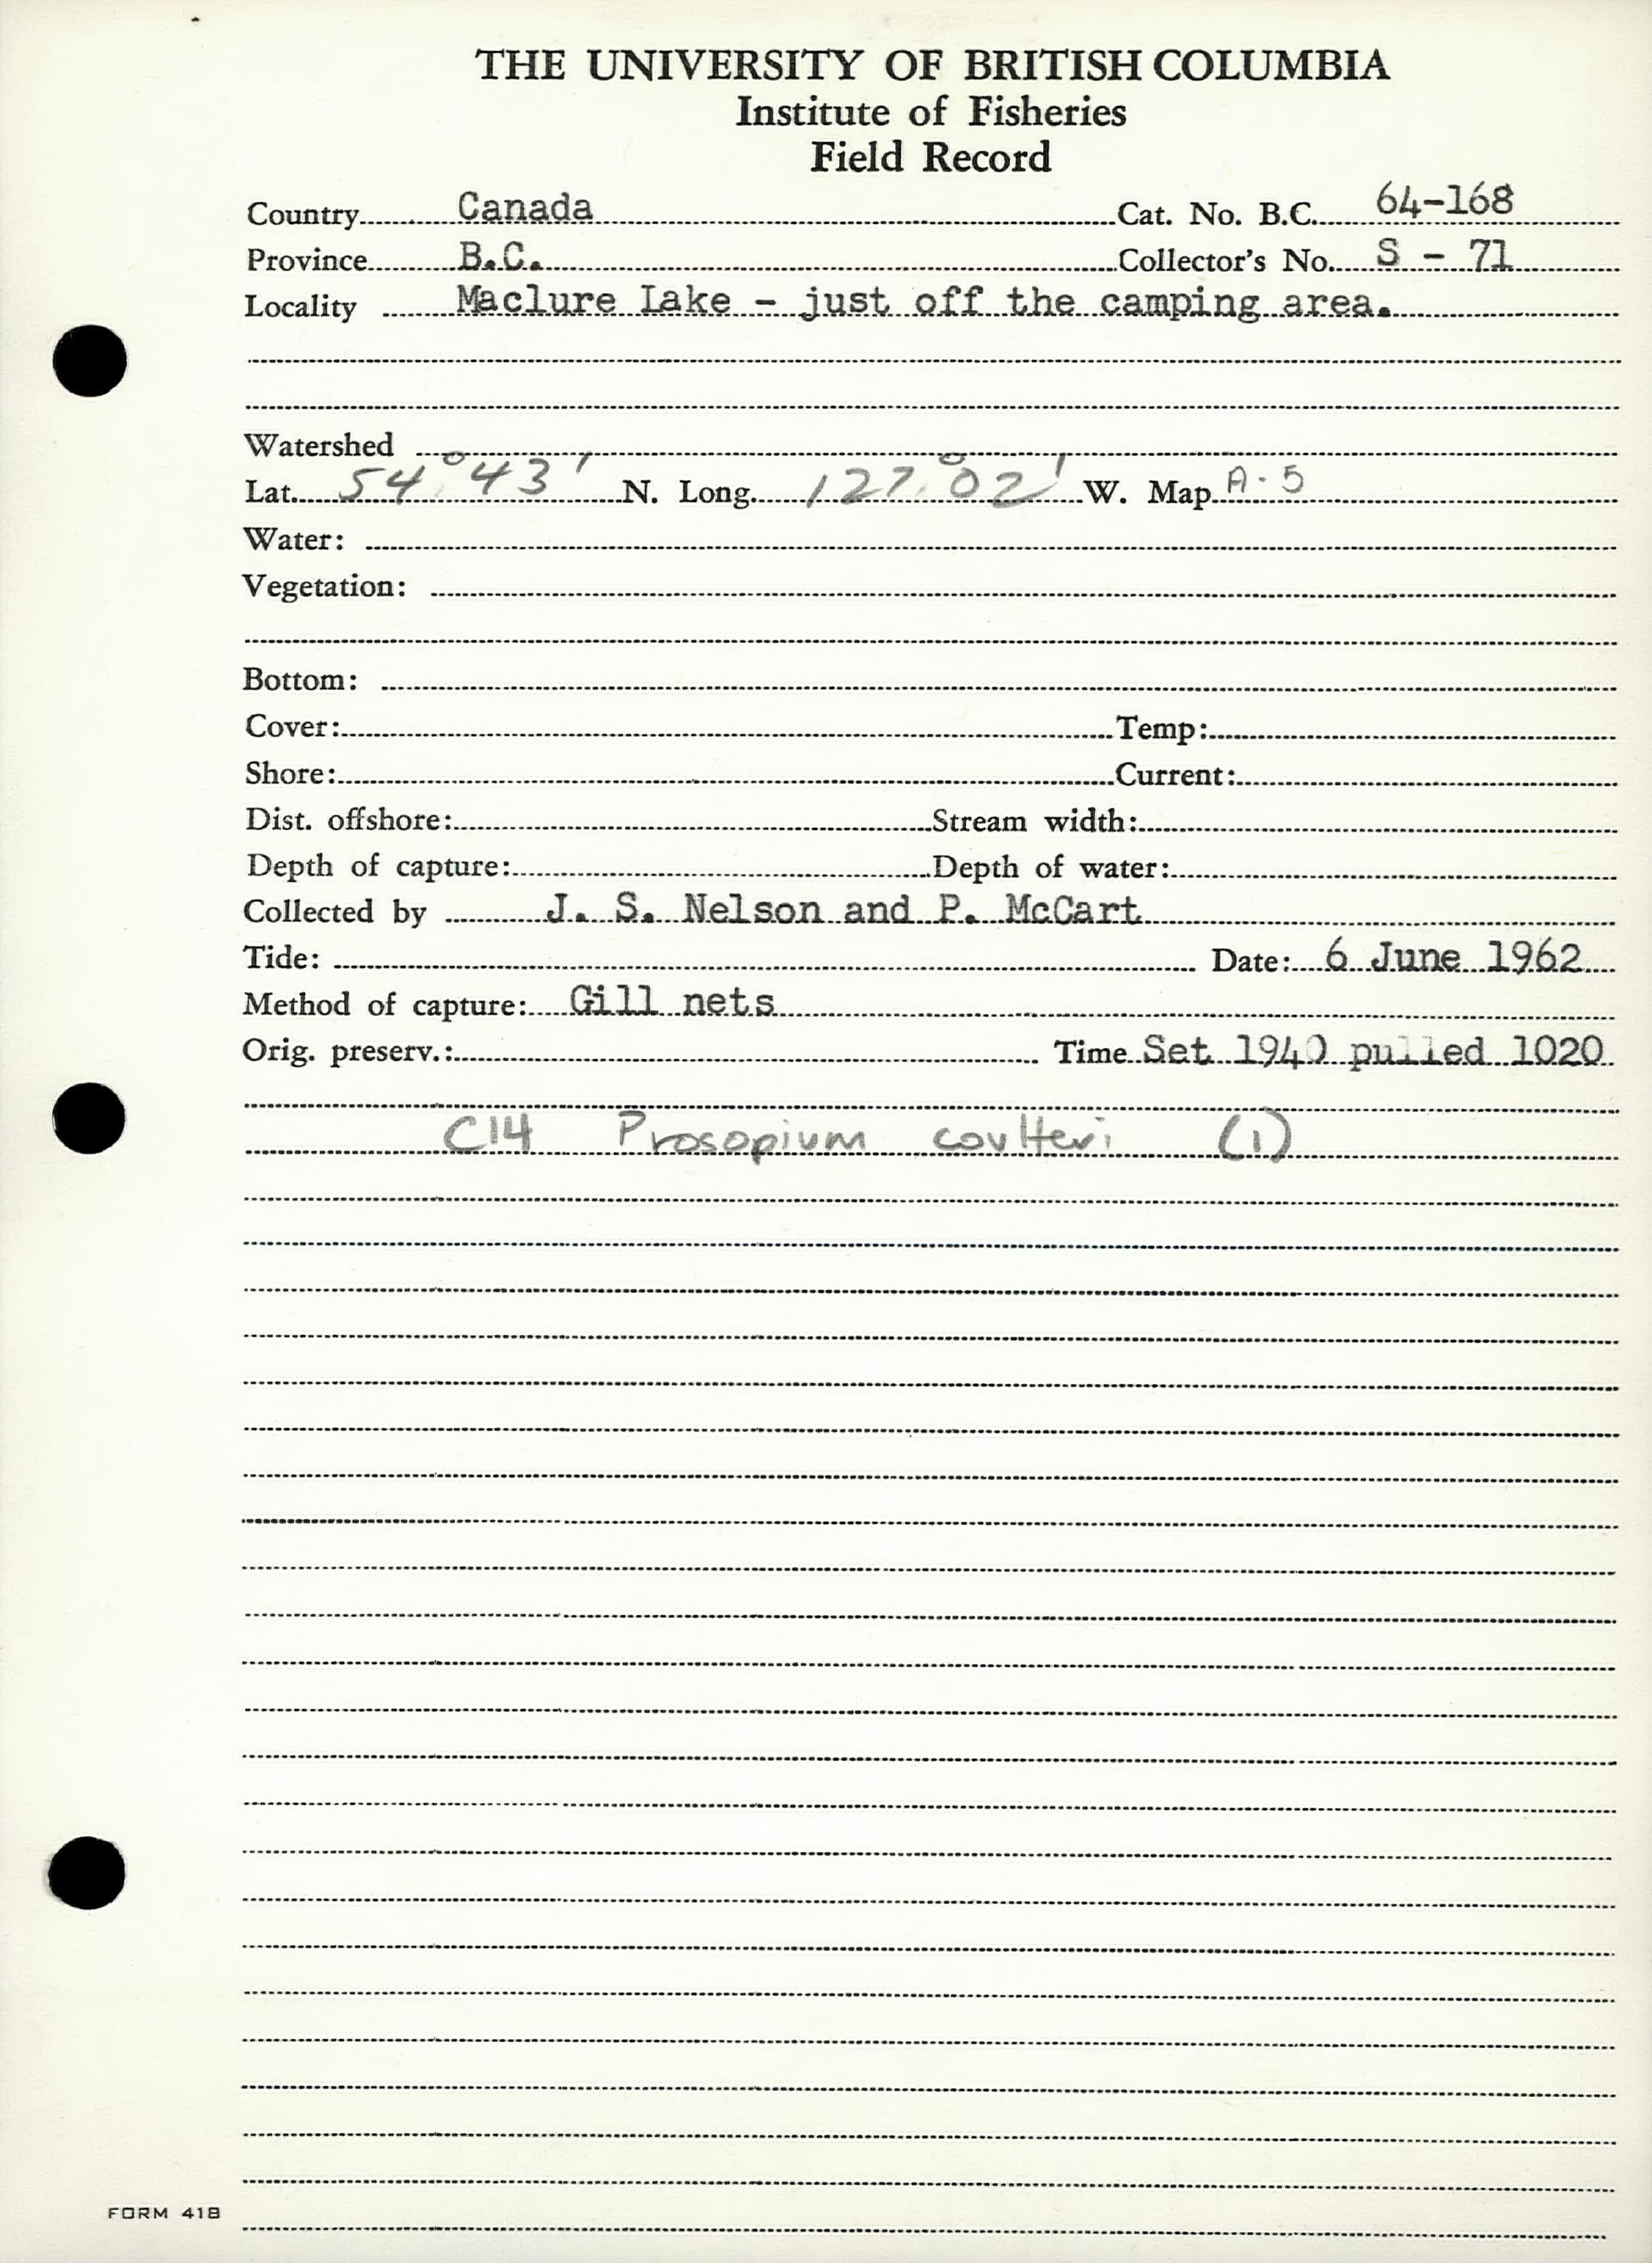 THE UNIVERSITY OF BRITISH COLUMBIA
Institute of Fisheries
Field Record
Country Canada Cat. No. B.C. 64-168
Province B.C. Collector's No. S - 71
Locality Maclure Lake - just off the camping area.
Watershed
Lat. 54° 43' N. Long. 127° 02' W. Map A-5
Water:
Vegetation:
Bottom:
Cover: Temp:
Shore: Current:
Dist. offshore: Stream width:
Depth of capture: Depth of water:
Collected by J. S. Nelson and P. McCart
Tide: Date: 6 June 1962
Method of capture: Gill nets
Orig. preserv.: Time Set 1940 pulled 1020
C14 Prosopium coulteri (1)
FORM 41B